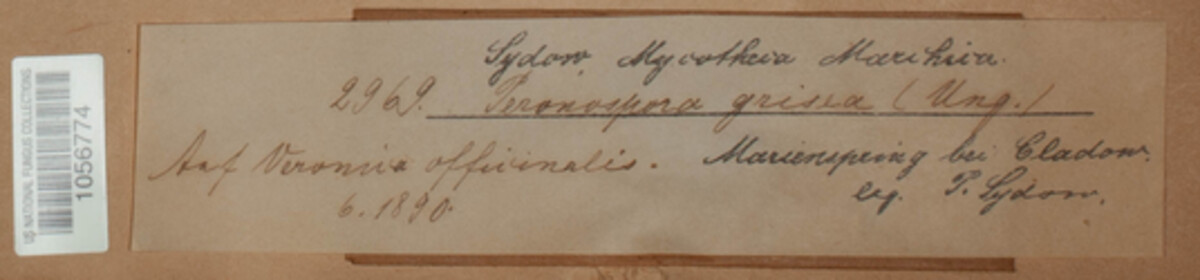 US NATIONAL FUNGUS COLLECTIONS
1056774
Sydow, Mycotheca Marchica.
2969. Peronospora grisea (Ung.)
Auf Veronica officinalis. Marienspring bei Cladow.
6. 1890. leg. P. Sydow.